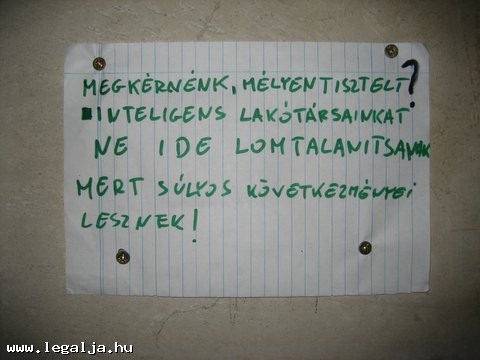 MEGKÉRNÉNK, MÉLYEN TISZTELT?
INTELIGENS LAKÓTÁRSAINKAT
NE IDE LOMTALANITSANAK
MERT SÚLYOS KÖVETKEZMÉNYEI
LESZNEK!
www.legalja.hu